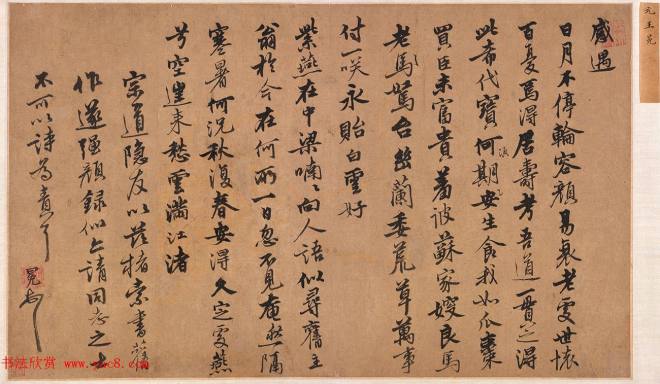 感遇
日月不停輪容顏易衰老處世懷
百憂焉得居壽考吾道一晉芝得
此希代寶何期安生食我如瓜棗
買臣未富貴甚彼蘇家嫂良馬
老馬駑台蘭委荒草萬事
付一咲永貽白雲好
紫燕在中梁喃喃向人語似尋舊主
翁於今在何所一日忽不見奄忽隔
寒暑何況秋復春安得久定處燕
兮空催來愁雲滿江渚
宗道隱友以茲楮索書舊
作遂強顏錄似上請同志之士
不可以詩為責
冕
元王冕
书法欣赏